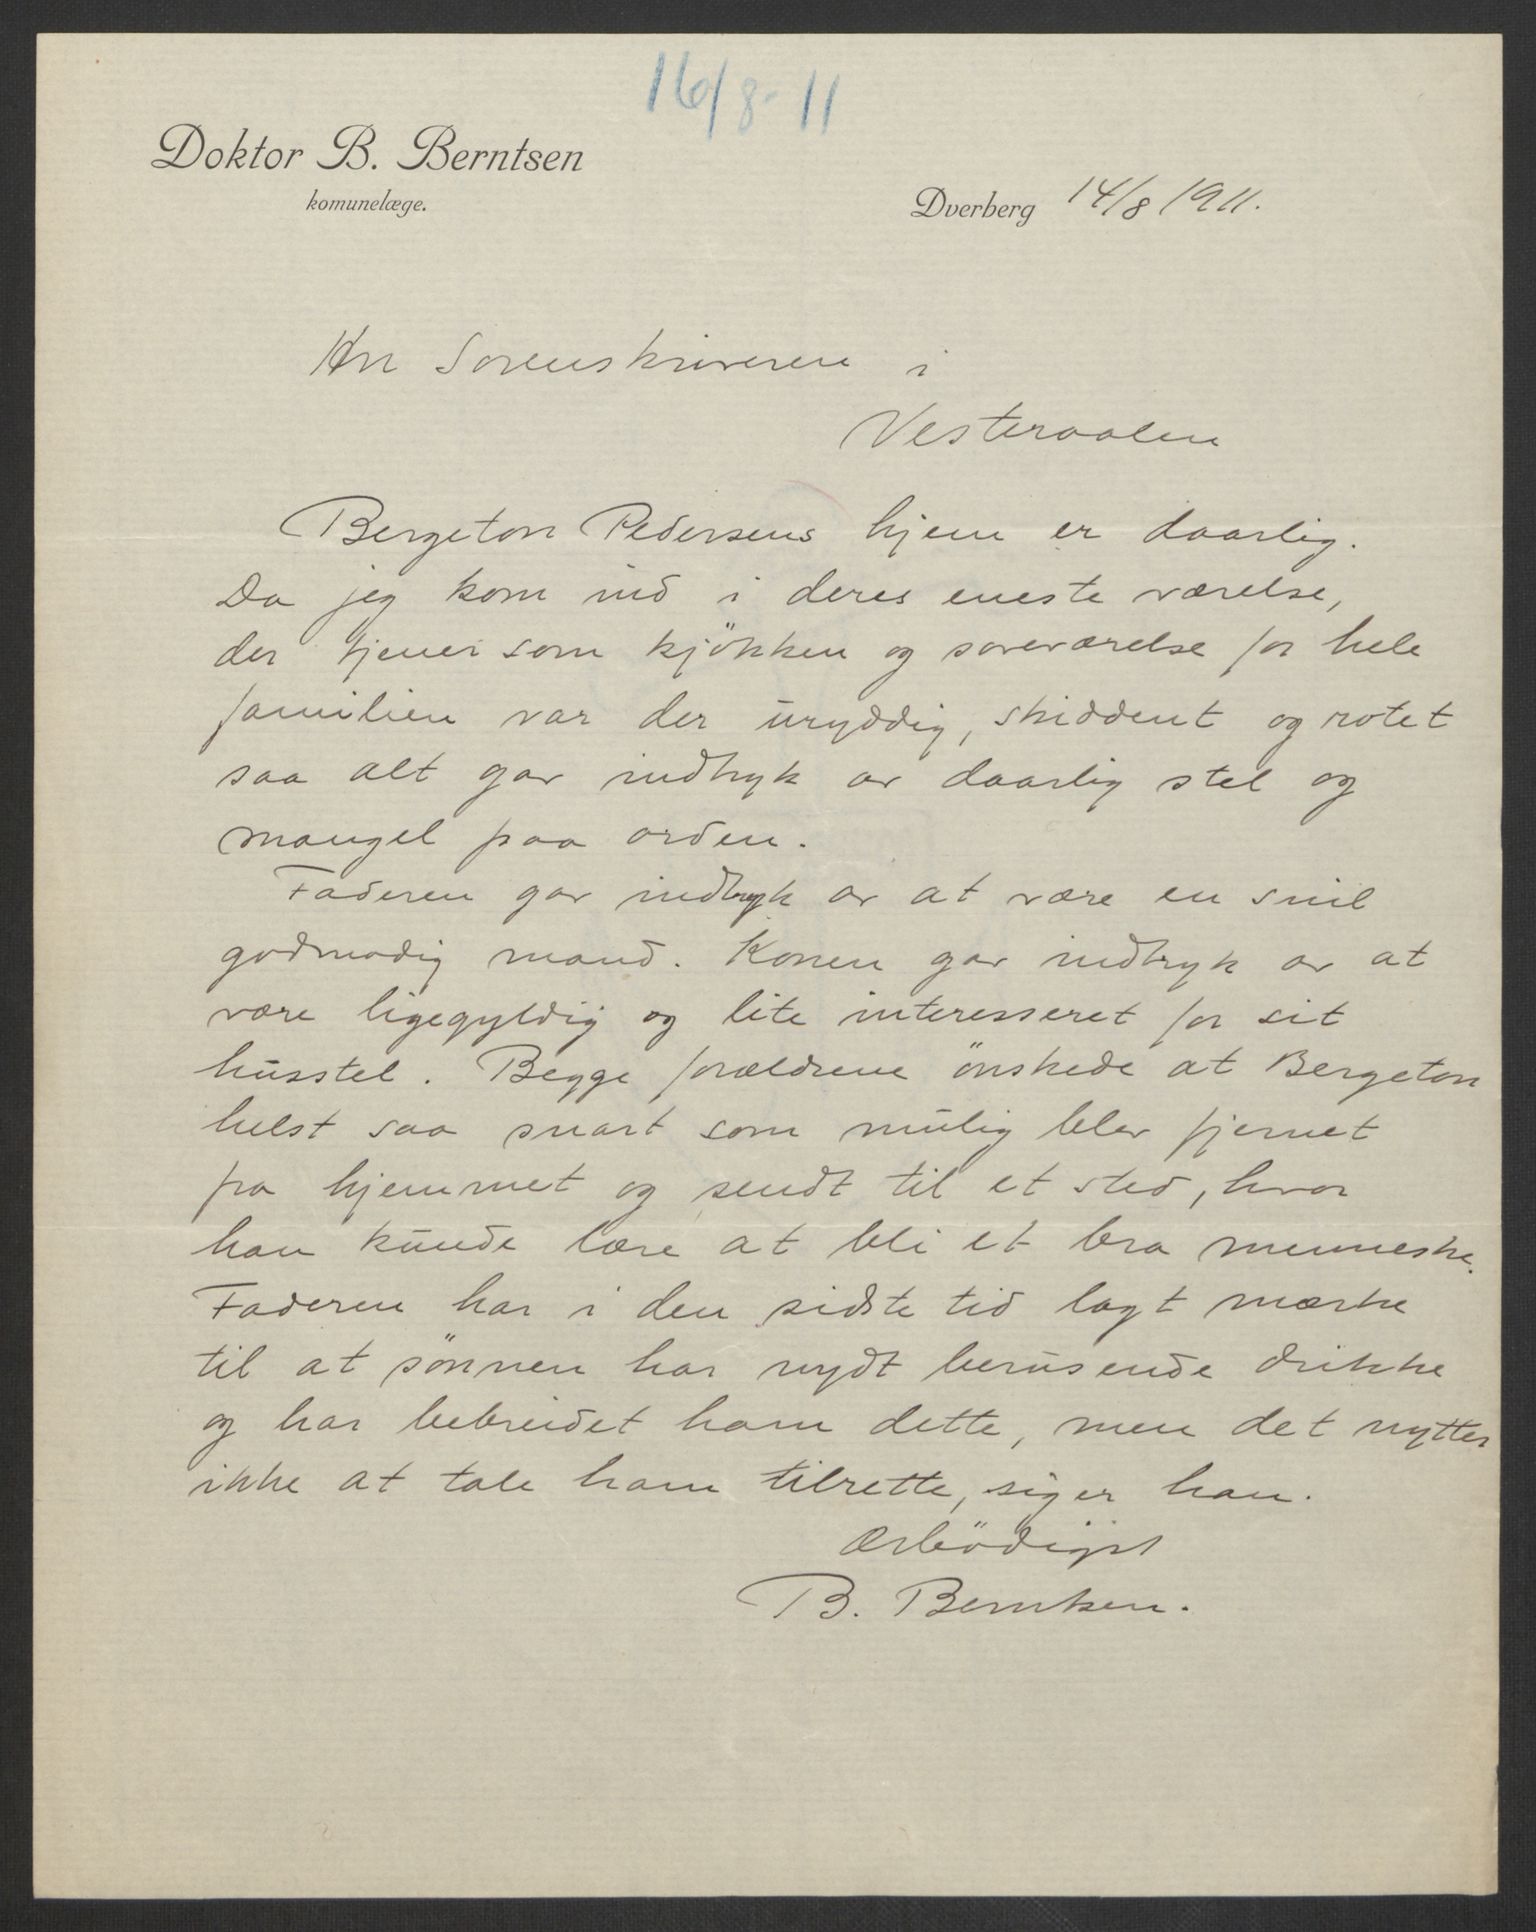 16/8-11
Doktor B. Berntsen
komunelæge.
Dverberg 14/8 1911.
Hr Sorenskriveren i
Vesteraalen
Bergeton Pedersens hjem er daarlig.
Da jeg kom ind i deres eneste værelse,
der tjener som kjökken og soveværelse for hele
familien var der uryddig, skiddent og rotet
saa alt gav indtryk av daarlig stel og
mangel paa orden.
Faderen gav indtryk av at være en snil
godmodig mand. Konen gav indtryk av at
være ligegyldig og lite interesseret for sit
husstel. Begge forældrene önskede at Bergeton
helst saa snart som mulig blev fjernet
fra hjemmet og sendt til et sted, hvor
han kunde lære at bli et bra menneske.
Faderen har i den sidste tid lagt mærke
til at sönnen har nydt berusende drikke
og har bebreidet ham dette, men det nytter
ikke at tale ham tilrette, siger han.
Ærbödigst
B. Berntsen.